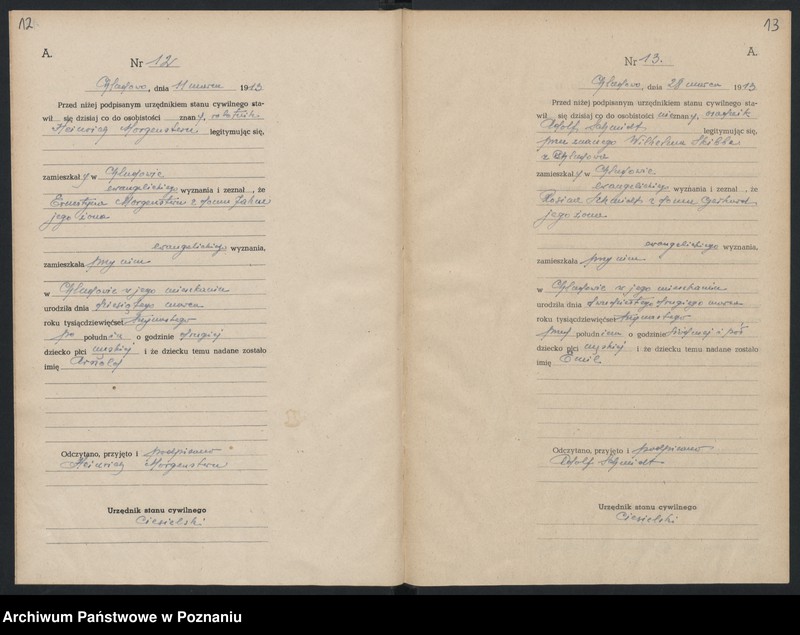 12
A.
Nr 12
dnia 11 marca 1913
Przed niżej podpisanym urzędnikiem stanu cywilnego sta-
wił się dzisiaj co do osobistości znany, robotnik
Heinrich Morgenstern legitymując się,
zamieszkały w
ewangelickiego wyznania i zeznał, że
Morgenstern z domu
jego żona
ewangelickiej wyznania,
zamieszkała przy nim
w w jego mieszkaniu
urodziła dnia dziesiątego marca
roku tysiącdziewięćset trzynastego
po południu o godzinie drugiej
dziecko płci męskiej i że dziecku temu nadane zostało
imię Arnold
Odczytano, przyjęto i podpisano
Heinrich Morgenstern
Urzędnik stanu cywilnego
Ciesielski
13
A.
Nr 13.
dnia marca 1913
Przed niżej podpisanym urzędnikiem stanu cywilnego sta-
wił się dzisiaj co do osobistości nieznany,
Adolf Schmidt legitymując się,
przez znanego Wilhelma
z
zamieszkały w
ewangelickiego wyznania i zeznał, że
Schmidt z domu Gerhardt
jego żona
ewangelickiego wyznania,
zamieszkała przy nim
w w jego mieszkaniu
urodziła dnia dwudziestego drugiego marca
roku tysiącdziewięćset trzynastego
przed południem o godzinie i pół
dziecko płci męskiej i że dziecku temu nadane zostało
imię Emil
Odczytano, przyjęto i podpisano
Adolf Schmidt
Urzędnik stanu cywilnego
Ciesielski
Archiwum Państwowe w Poznaniu